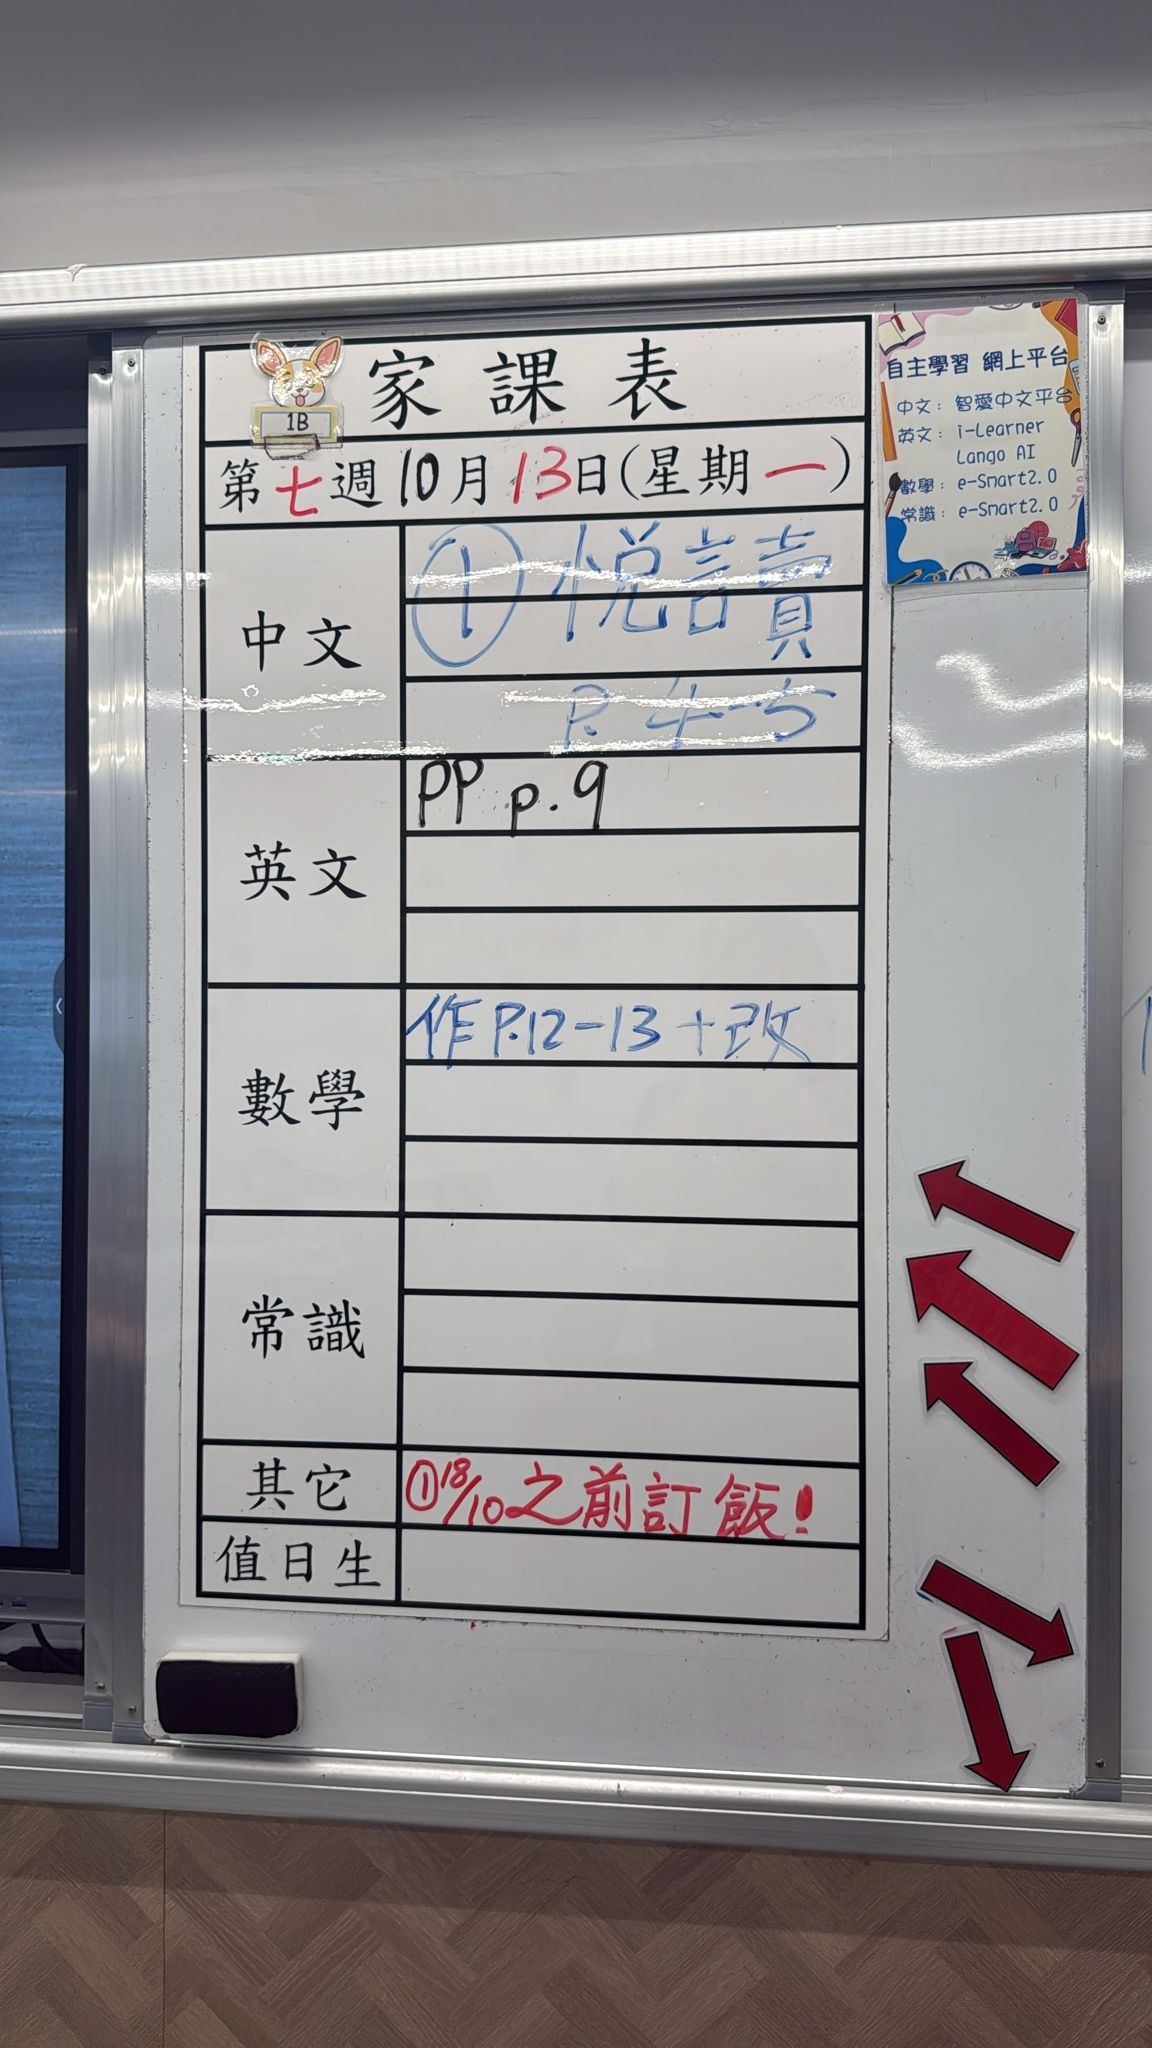 家課表
1B
第七週10月13日(星期一)
中文
① 悅讀
P.4-5
英文
PP p.9
數學
作P.12-13+改
常識
其它
①18/10之前訂飯!
值日生
自主學習 網上平台
中文：智愛中文平台
英文：i-Learner
Lango AI
數學：e-Smart2.0
常識：e-Smart2.0